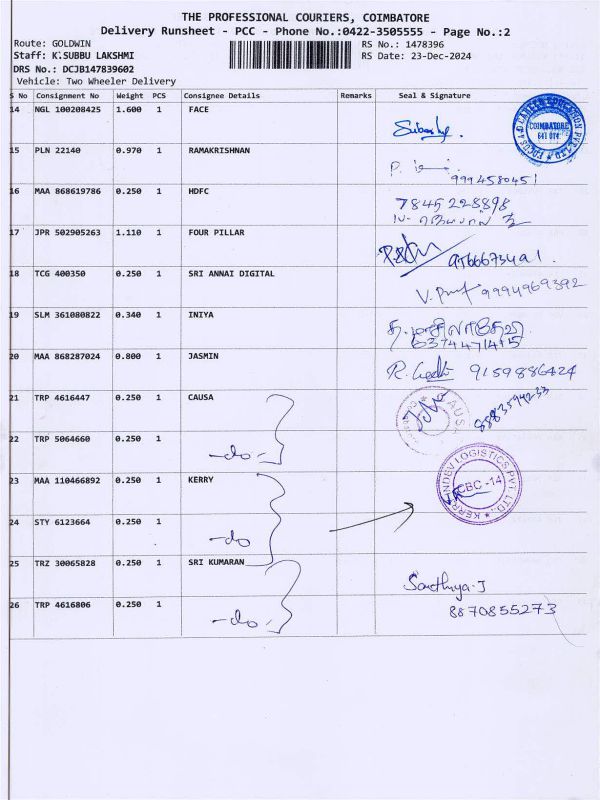 THE PROFESSIONAL COURIERS, COIMBATORE
Delivery Runsheet - PCC - Phone No.:0422-3505555 - Page No.:2
Route: GOLDWIN RS No.: 1478396
Staff: K.SUBBU LAKSHMI RS Date: 23-Dec-2024
DRS No.: DCJB147839602
Vehicle: Two Wheeler Delivery
S No Consignment No Weight PCS Consignee Details Remarks Seal & Signature
14 NGL 100208425 1.600 1 FACE
COIMBATORE
641 014
15 PLN 22140 0.970 1 RAMAKRISHNAN
9994580451
16 MAA 868619786 0.250 1 HDFC
7845228898
17 JPR 502905263 1.110 1 FOUR PILLAR
18 TCG 400350 0.250 1 SRI ANNAI DIGITAL
9994969392
19 SLM 361080822 0.340 1 INIYA
20 MAA 868287024 0.800 1 JASMIN
9159886424
21 TRP 4616447 0.250 1 CAUSA
22 TRP 5064660 0.250 1 -do-
23 MAA 110466892 0.250 1 KERRY
KERRY INDEV LOGISTICS PVT LTD.,
CBC -14
24 STY 6123664 0.250 1 -do
25 TRZ 30065828 0.250 1 SRI KUMARAN
Sandhiya.J
26 TRP 4616806 0.250 1 -do-
8870855273